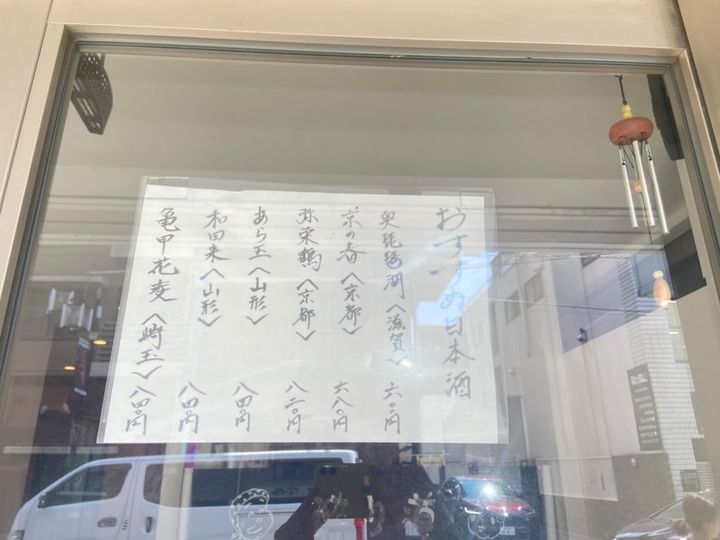 おすすめ日本酒
奥琵琶湖〈滋賀〉 六〇〇円
京の春〈京都〉 六八〇円
弥栄鶴〈京都〉 八二〇円
あら玉〈山形〉 八四〇円
和田来〈山形〉 八四〇円
亀甲花菱〈埼玉〉 八四〇円